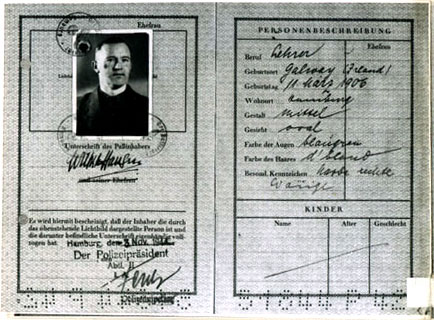 Ehefrau
Unterschrift des Paßinhabers
Wilhelm Hansen
und seiner Ehefrau
Es wird hiermit bescheinigt, daß der Inhaber die durch
das obenstehende Lichtbild dargestellte Person ist und
die darunter befindliche Unterschrift eigenhändig voll-
zogen hat.
Hamburg, dem Nov.
Der Polizeipräsident
Abt. II
PERSONENBESCHREIBUNG
Ehefrau
Beruf Lehrer
Geburtsort Galway (Irland)
Geburtstag 11. März 1906
Wohnort Hamburg
Gestalt mittel
Gesicht oval
Farbe der Augen blaugrau
Farbe des Haares d'blond
Besond. Kennzeichen Narbe rechte
Wange
KINDER
Name Alter Geschlecht